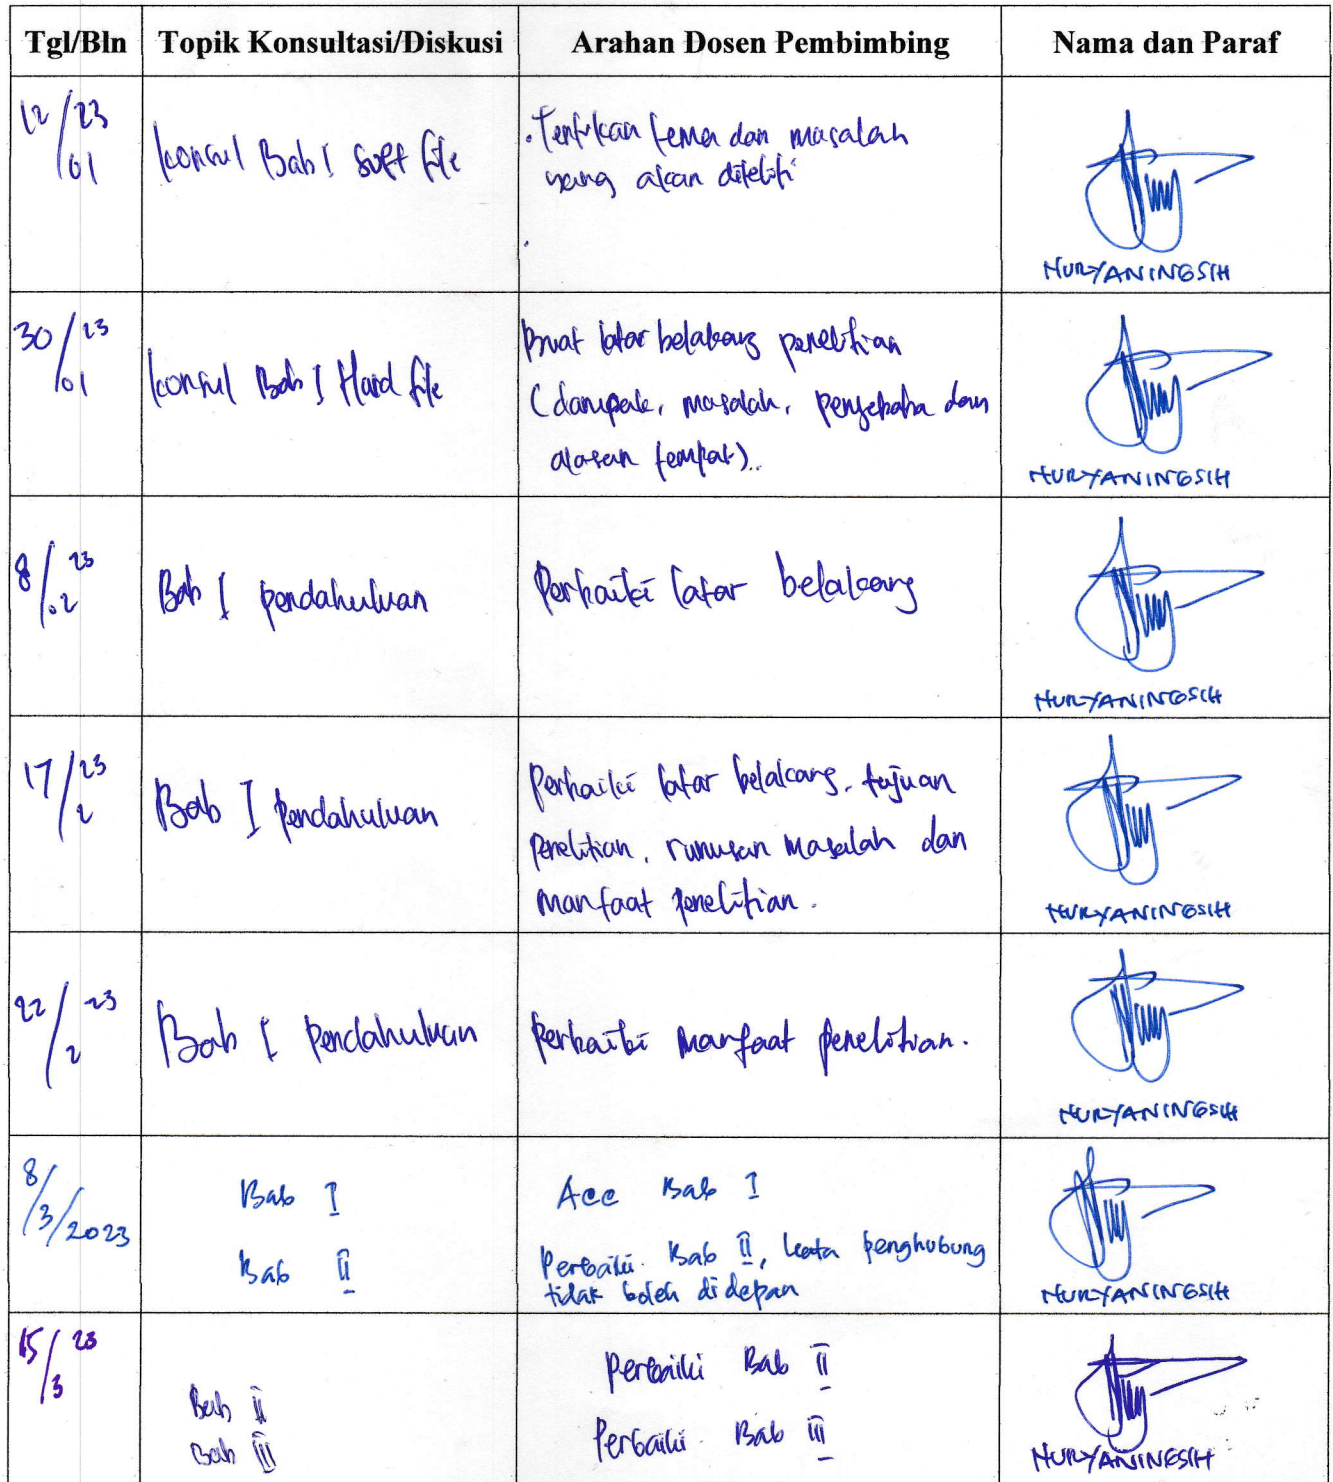 Tgl/Bln Topik Konsultasi/Diskusi Arahan Dosen Pembimbing Nama dan Paraf
12/01 23
konsul Bab I Soft file
. Tentukan tema dan masalah
yang akan diteliti
NURYANINGSIH
30/01 23
konsul Bab I Hard file
Buat latar belakang penelitian
(dampak, masalah, penyebaba dan
alasan tempat)..
NURYANINGSIH
8/02 23
Bab I pendahuluan
Perbaiki latar belakang
NURYANINGSIH
17/2 23
Bab I Pendahuluan
Perbaiki latar belakang, tujuan
penelitian, rumusan masalah dan
manfaat penelitian.
NURYANINGSIH
22/2 23
Bab I Pendahuluan
Perbaiki manfaat penelitian.
NURYANINGSIH
8/3/2023
Bab I
Bab II
Acc Bab I
Perbaiki Bab II, kata penghubung
tidak boleh didepan
NURYANINGSIH
15/3 23
Bab II
Bab III
Perbaiki Bab II
Perbaiki Bab III
NURYANINGSIH